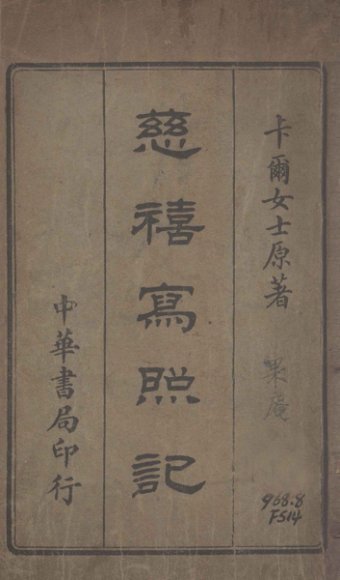 卡爾女士原著
果庵
慈禧寫照記
中華書局印行
968.8
F514